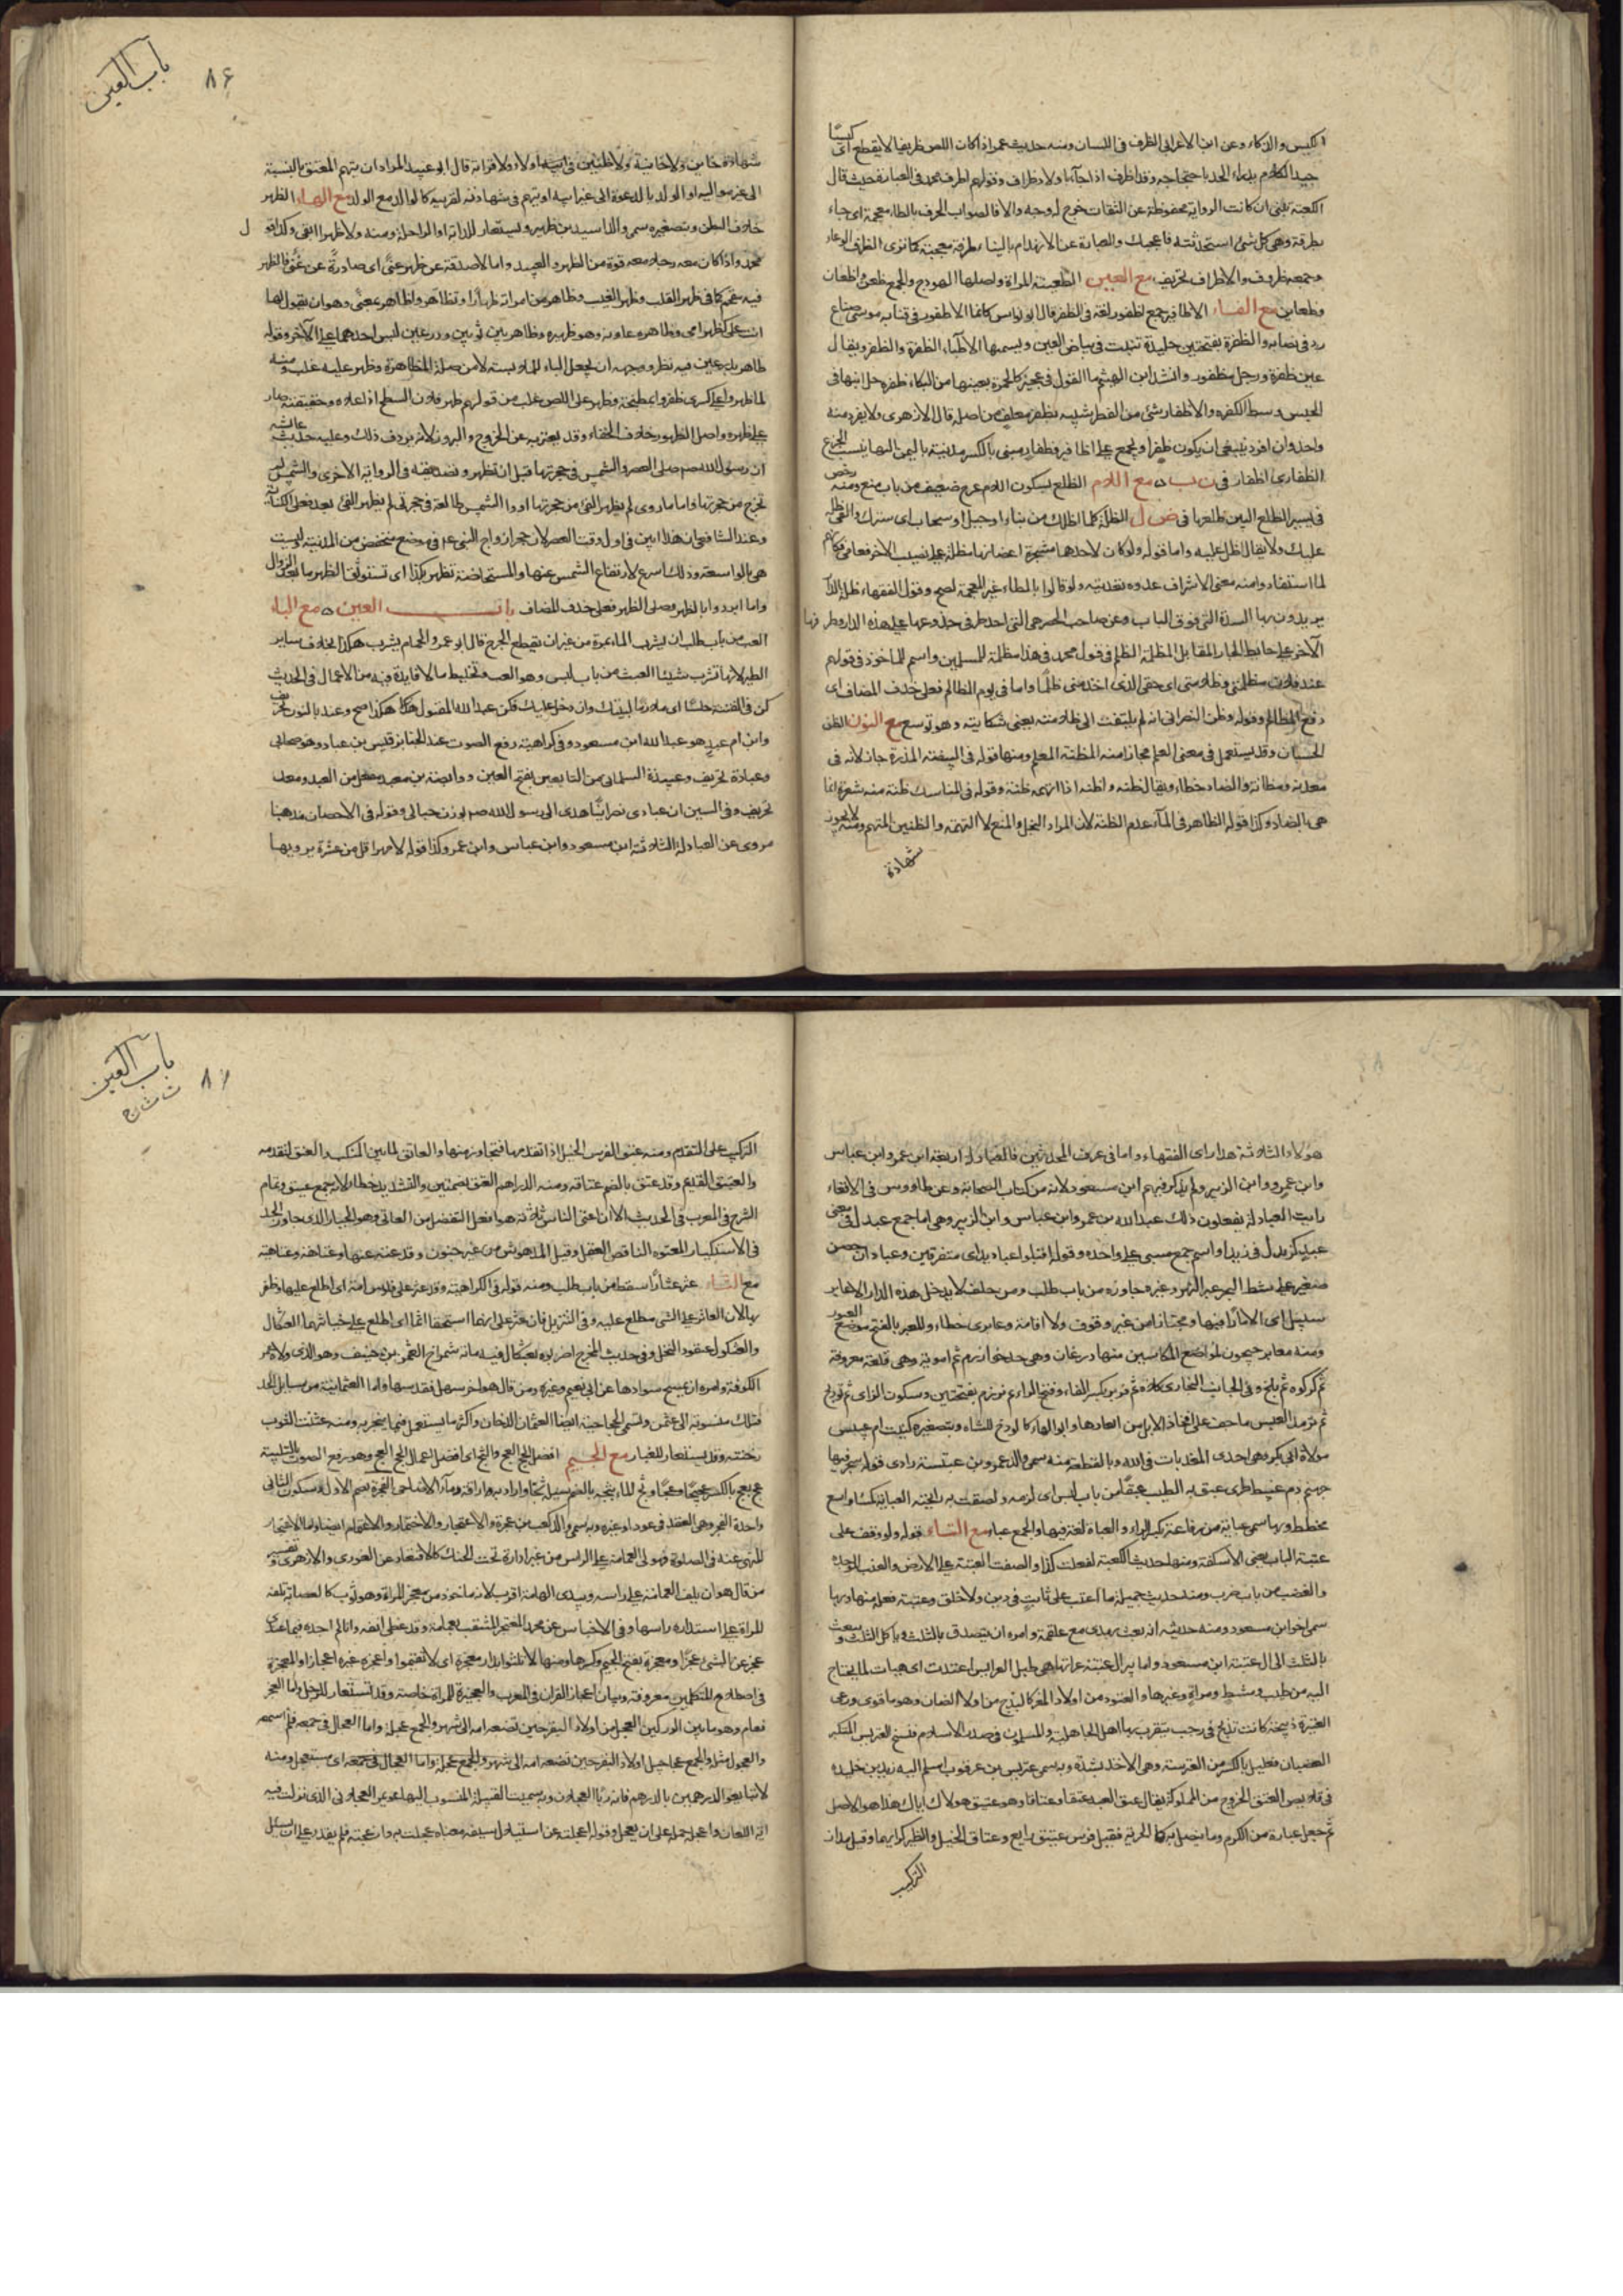 الكيس والذكاء وعن ابن الاعرابي الظرف في اللسان ومنه حديث عمر اذا كان اللص ظريفا لا يقطع اى كيسا
جيد الكلام يدراء الحد باحتجاجه وقد اظرف اذا جاء باولاد ظراف وقولهم اظرف محمد في العبارة حيث قال
الكعبة تبنى ان كانت الرواية محفوظة عن الثقات خرج له وجه والا فالصواب الحرف بالطاء معجمة اى جاء
بطرفة وهي كل شئ استحدثته فاعجبك والعبارة عن الانهدام بالبناء طرفة معجبة كما ترى الظرف الوعاء
وجمعه ظروف والاظراف تحريف مع العين الظعينة المراة واصلها الهودج والجمع ظعن واظعان
وظعاين مع الفاء الاظافير جمع اظفور لغة في الظفر قال ابو نواس كانما الاظفور في قنابه موسى صناع
رد في نصابه والظفرة بفتحتين جليدة تنبت في بياض العين ويسميها الاطباء الظفرة والظفر ويقال
عين ظفرة ورجل مظفور وانشد ابو الهيثم ما القول في عجيز كالحمرة بعينها من البكاء ظفره حل ابنها في
الحبس وسط الكفره والاظفار شئ من العطر شبيه بظفر مقلف من اصله قال الازهري ولا يفرد منه
واحد وان افرد ينبغي ان يكون ظفرا ويجمع على اظافير وظفار مبنى بالكسر مدينة باليمن اليها ينسب الجزع
الظفارى اظفار في ن ب ذ مع اللام الظلع بسكون اللام عرج ضعيف من باب منع ومنه رخص
في يسير الظلع البين ظلعها في ض ل الظلة كلما اظلك من بناء او جبل او سحاب اى سترك والقى ظله
عليك ولا يقال اظل عليه واما قوله ولو كان لاحدهما مشجرة اغصانها مظلة على نصيب الآخر فعامي فكانهم
لما استفادوا منه معنى الاشراف عدوه تعديته ولو قالوا بالطاء غير المعجمة لصح وقول الفقهاء ظلة الدار
يريدون بها السدة التي فوق الباب وعن صاحب الحصر هي التي احد طرفي جذوعها على هذه الدار وطرفها
الآخر على حائط الجار المقابل المظلة الظلم في قول محمد في هذا مظلمة للمسلمين واسم للماخوذ في قولهم
عند فلان مظلمتي وظلامتي اى حقي الذى اخذ منى ظلما واما في يوم المظالم فعلى حذف المضاف اى
دفع المظالم وقوله وظن النصراني انه لم يلتفت الى ظلامته يعني شكايته وهو توسع مع النون الظن
الحسبان وقد يستعمل في معنى العلم مجازا منه المظنة المعلم ومنها قوله في السفتة المذرة جاز لانه في
معدنه ومظانه والضاد خطاء ويقال ظنه واظنه اذا اتهمه ظنة وقوله في المناسك ظنة منه شعرة انما
هي بالضاد وكذا قوله الظاهر في الماء عدم الظنة لان المراد البخل والمنع لا التهمة والظنين المتهم ومنه لا يجوز
شهادة
باب العين
٨٤
شهادة خاين ولا خاينة ولا ظنين في ولاء ولا قرابة قال ابو عبيد المراد ان يتهم المعتق بالنسبة
الى غير مواليه او الولد بالدعوة الى غير ابيه او يتهم في شهادته لقريبه كالوالد مع الولد مع الهاء الظهر
خلاف البطن وبتصغيره سمى والد اسيد بن ظهير ويستعار للدابة او الراحلة ومنه ولا ظهرا ابقى وكذا قول
محمد واذا كان معه رجل معه قوة من الظهر والعبيد واما لا صدقة عن ظهر غنى اى صادرة عن غنى فالظهر
فيه مقحم كما في ظهر القلب وظهر الغيب وظاهر من امراته ظهارا وتظاهر واظاهر بمعنى وهو ان يقول لها
انت على كظهر امي وظاهره عاونه وهو ظهيره وظاهر بين ثوبين ودرعين لبس احدهما على الآخر وقوله
ظاهر بدرعين فيه نظر ووجهه ان يجعل الباء للملابسة لا من صلة المظاهرة وظهر عليه غلب ومنه
لما ظهروا على كسرى ظفروا بمطبخه وظهر على اللص غلب من قولهم ظهر فلان السطح اذا علاه وحقيقته صار
على ظهره واصل الظهور خلاف الخفاء وقد يعبر به عن الخروج والبروز لانه يردف ذلك وعليه حديث عائشة
ان رسول الله صلى العصر والشمس في حجرتها قبل ان تظهر وتصديقه في الرواية الاخرى والشمس لم
تخرج من حجرتها واما ما روى لم يظهر الفئ من حجرتها او والشمس طالعة في حجرتي لم يظهر الفئ بعد فعلى الكناية
وعند الشافعي ان هذا ابين في اول وقت العصر لان حجر ازواج النبي عم في موضع منخفض من المدينة وليست
هي بالواسعة وذلك اسرع لارتفاع الشمس عنها والمستحاضة تظهر بكذا اى تستوثق الظهر ما بعد الزوال
واما ابردوا بالظهر وصلى الظهر فعلى حذف المضاف باب العين ٥ مع الباء
العب من باب طلب ان يشرب الماء بمرة من غير ان يقطع الجرع قال ابو عمرو والحمام يشرب هكذا بخلاف ساير
الطير لانها تشرب شيئا العبث من باب لبس وهو اللعب وتخليط ما لا فايدة فيه من الاعمال في الحديث
كن في الفتنة حلسا اى ملازما لبيتك وان دخل عليك فكن عبد الله المقتول هكذا صح وعند بالنون تحريف
وابن ام عبد هو عبد الله ابن مسعود وفي كراهية رفع الصوت عند الجنايز قيس بن عباد وهو صحابي
وعبادة تحريف وعبيدة السلماني من التابعين بفتح العين ووابصة بن معبد مفعل من العبد ومعد
تحريف وفي السير ان عبادى نصرانيا هدى الى رسول الله صم بوزن حبالى وقوله في الاحصان مذهبنا
مروى عن العبادلة الثلاثة ابن مسعود وابن عباس وابن عمر وكذا قوله لا مهر اقل من عشرة يرويها
هولاء الثلاثة هذا راى الفقهاء واما في عرف المحدثين فالعبادلة اربعة ابن عمر وابن عباس
وابن عمرو وابن الزبير ولم يذكر فيهم ابن مسعود لانه من كبار الصحابة وعن طاووس في الاقعاء
رايت العبادلة يفعلون ذلك عبد الله بن عمر وابن عباس وابن الزبير وهي اما جمع عبدل في معنى
عبد كزيدل في زيد او اسم جمع مبنى على واحده وقوله اقبلوا عباديد اى متفرقين وعبادان حصن
صغير على شط البحر عبر النهر وغيره جاوزه من باب طلب ومن حلف لا يدخل هذه الدار الا عابر
سبيل اى الا مارا فيها ومجتازا من غير وقوف ولا اقامة وعابرى خطاء والمعبر بالفتح موضع العبور
ومنه معابر جيحون لمواضع المكاسين منها درغان وهي حد خوارزم ثم امويه وهي قلعة معروفة
ثم كركوه ثم بلخ وفي الجانب البخارى كلاه ثم فربر بكسر الفاء وفتح الراء ثم نرزم بفتحتين وسكون الزاى ثم توبذ
ثم ترمذ العبس ما جف على افخاذ الابل من ابعادها وابوالها كالوذح للشاء وبتصغيره كنيت ام عبيس
مولاة ابي بكر وهي احدى المعذبات في الله وبالقطعة منه سمى والد عمرو بن عبسة راوى قوله سجر فيها
جهنم دم عبيط طرى عبق به الطيب عبقا من باب لبس اى لزمه ولصقت به رايحته العباية كساء واسع
مخطط وبها سمى عباية بن رفاعة بكسر الراء والعباة لغة فيها والجمع عباء مع التاء قوله ولو وقف على
عتبة الباب يعني الاسكفة ومنها حديث الكعبة لفعلت كذا والصقت العتبة على الارض والعتب الموجدة
والغضب من باب ضرب ومنه حديث جميلة ما اعتب على ثابت في دين ولا خلق وعتبة فعلة منها وبها
سمى اخو ابن مسعود ومنه حديثه انه بعث بهدى مع علقمة وامره ان يتصدق بالثلث وياكل الثلث ويبعث
بالثلث الى ال عتبة ابن مسعود
البه من طيب ومشط ومراة وغيرها والعتود من اولاد المعز كالجذع من اولاد الضان وهو ما قوى ورعى
العتيرة ذبيحة كانت تذبح في رجب يتقرب بها اهل الجاهلية والمسلمون في صدر الاسلام فنسخ العتريس المتكبر
الغضبان فعليل بالكسر من العترسة وهي الاخذ بشدة وبه سمى عتريس بن عرقوب اسلم اليه زيد بن خليدة
في قلايص العتق الخروج من المملوكية يقال عتق العبد عتقا وعتاقا وهو عتيق هولاك اياك هذا هو الاصل
ثم جعل عبارة عن الكرم وما يتصل به كالحرية فقيل فرس عتيق رايع وعتاق الخيل والطير كرايمها وقيل مدار
التركيب
باب العين
ت ث ج
٨٧
التركيب على التقدم ومنه عتق الفرس الخيل اذا تقدمها فنجا منها والعاتق لما بين المنكب والعنق لتقدمه
والعتيق القديم وقد عتق بالضم عتاقة ومنه الدراهم العتق بضمتين والتشديد خطاء لانه جمع عتيق وتمام
الشرح في المعرب في الحديث الا ان اعتى الناس ثلاثة هو افعل التفضيل من العاتي وهو الجبار الذى جاوز الحد
في الاستكبار المعتوه الناقص العقل وقيل المدهوش من غير جنون وقد عته عتها وعتاهة وعتاهية
مع الثاء عثر عثارا سقط من باب طلب ومنه قوله في الكراهية وقد عثر على فلوس امة اى اطلع عليها وظفر
بها لان العاثر على الشئ مطلع عليه وفي التنزيل فان عثر على انهما استحقا اثما اى اطلع على خيانتهما العثكال
والعثكول عنقود النخل وفي حديث المخدج اضربوه بعثكال فيه مائة شمراخ العثمن بن حنيف وهو الذى ولاه عمر
الكوفة وامره ان يمسح سوادها عن ابي نعيم وغيره ومن قال هو اخو سهل فقد سها واما العثمانية من مسايل الجد
فتلك منسوبة الى عثمن وتسمى الحجاجية ايضا العثان الدخان واكثر ما يستعمل فيما يتبخر به ومنه عثنت الثوب
دخنته وقد يستعار للغبار مع الجيم افضل الحج العج والثج اى افضل اعمال الحج العج وهو رفع الصوت بالتلبية
عج يعج بالكسر عجيجا وعجا وثج الماء يثجه بالضم سيله ثجا واراد به اراقة دماء الاضاحي العجرة بضم الاول وسكون الثاني
واحدة العجر وهي العقد في عود او غيره وبها سمى والد كعب بن عجرة والاعتجار والاختمار والاعتمام ايضا واما الاعتجار
المنهى عنه في الصلوة فهو لي العمامة على الراس من غير ادارة تحت الحنك كالاقتعاط عن الغورى والازهرى وتفسير
من قال هو ان يلف العمامة على راسه ويبدى الهامة اقرب لانه ماخوذ من معجر المراة وهو ثوب كالعصابة تلفه
المراة على استدارة راسها وفي الاجناس عن محمد المعتجر المتنقب بعمامته وقد غطى انفه وانا لم اجده فيما عندى
عجز عن الشئ عجزا ومعجزة بفتح الجيم وكسرها ومنها لا تلثوا بدار معجزة اى لا تقيموا واعجزه غيره اعجازا والمعجزة
في اصطلاح المتكلمين معروفة وبيان اعجاز القران في المعرب والعجيزة للمراة خاصة وقد تستعار للرجل واما العجز
فعام وهو ما بين الوركين العجل من اولاد البقر حين تضعه امه الى شهر والجمع عجلة واما العجال في جمعه فلم اسمعه
والعجول مثله والجمع عجاجيل اولاد البقر حين تضعه امه الى شهر والجمع عجلة واما العجال في جمعه اى مستعجل ومنه
لا تتبايعوا الدرهمين بالدرهم فانه ربا العجلان وبه سميت القبيلة المنسوب اليها عويمر العجلاني الذى نزلت فيه
اية اللعان واعجله حمله على ان يعجل وقوله اعجلته عن استلال سيفه معناه عجلت به وازعجته فلم يقدر على ان يستل